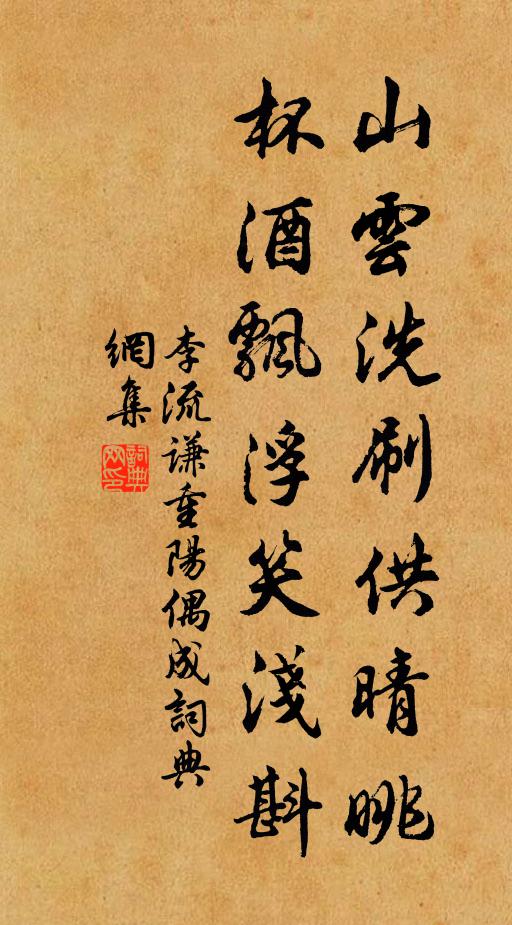 山雲洗刷供晴眺
杯酒飄浮笑淺斟
李流谦重陽偶成詞典
網集
詞典網印